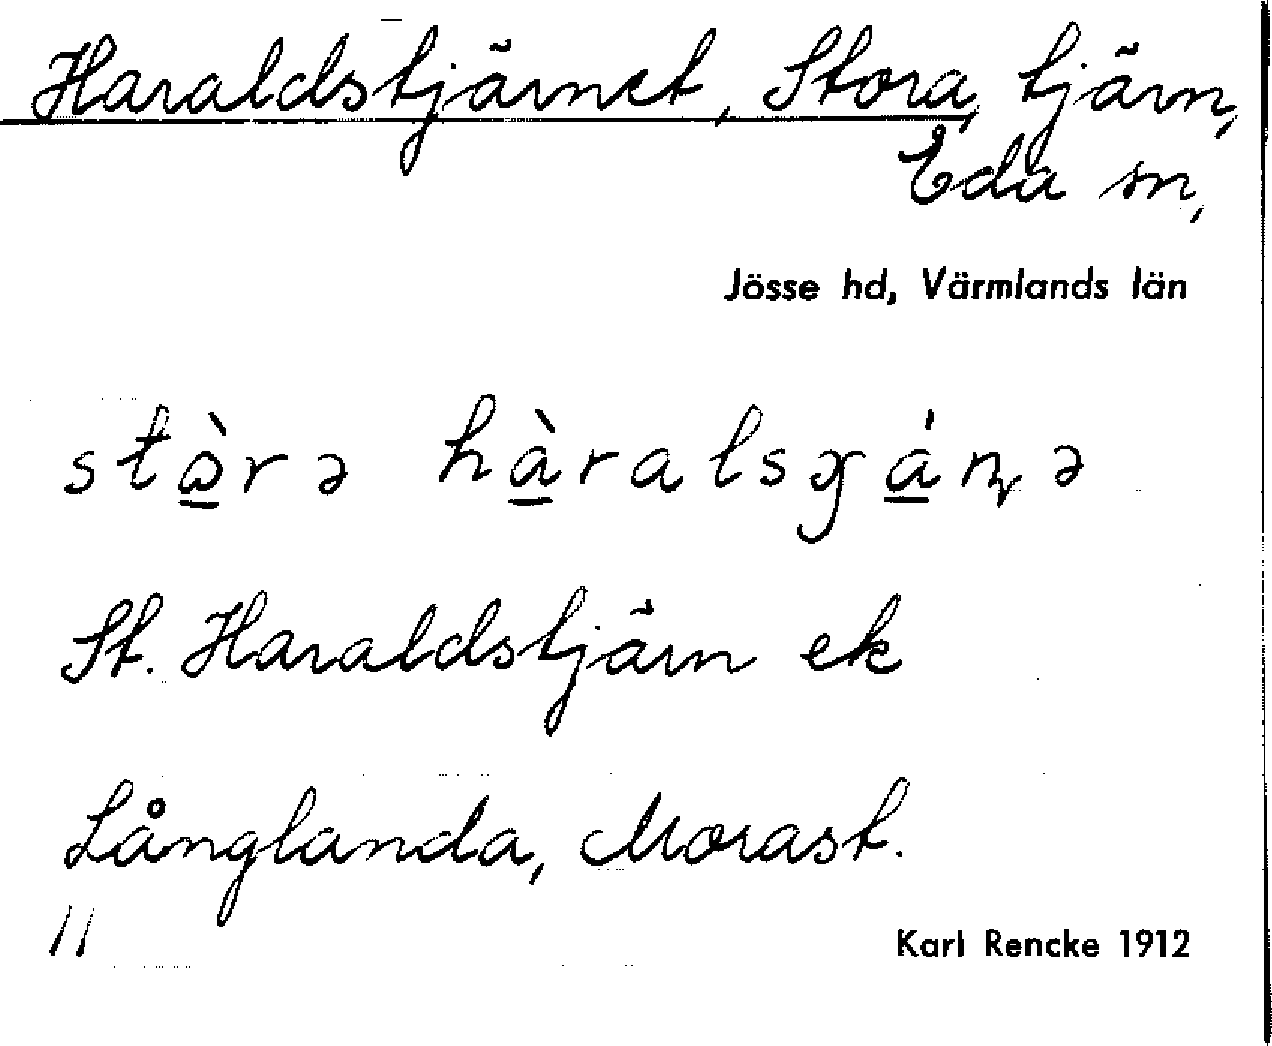 Haraldstjärnet, Stora, tjärn,
Eda sn,
Jösse hd, Värmlands län
St. Haraldstjärn ek
Långlanda, Morast.
11
Karl Rencke 1912